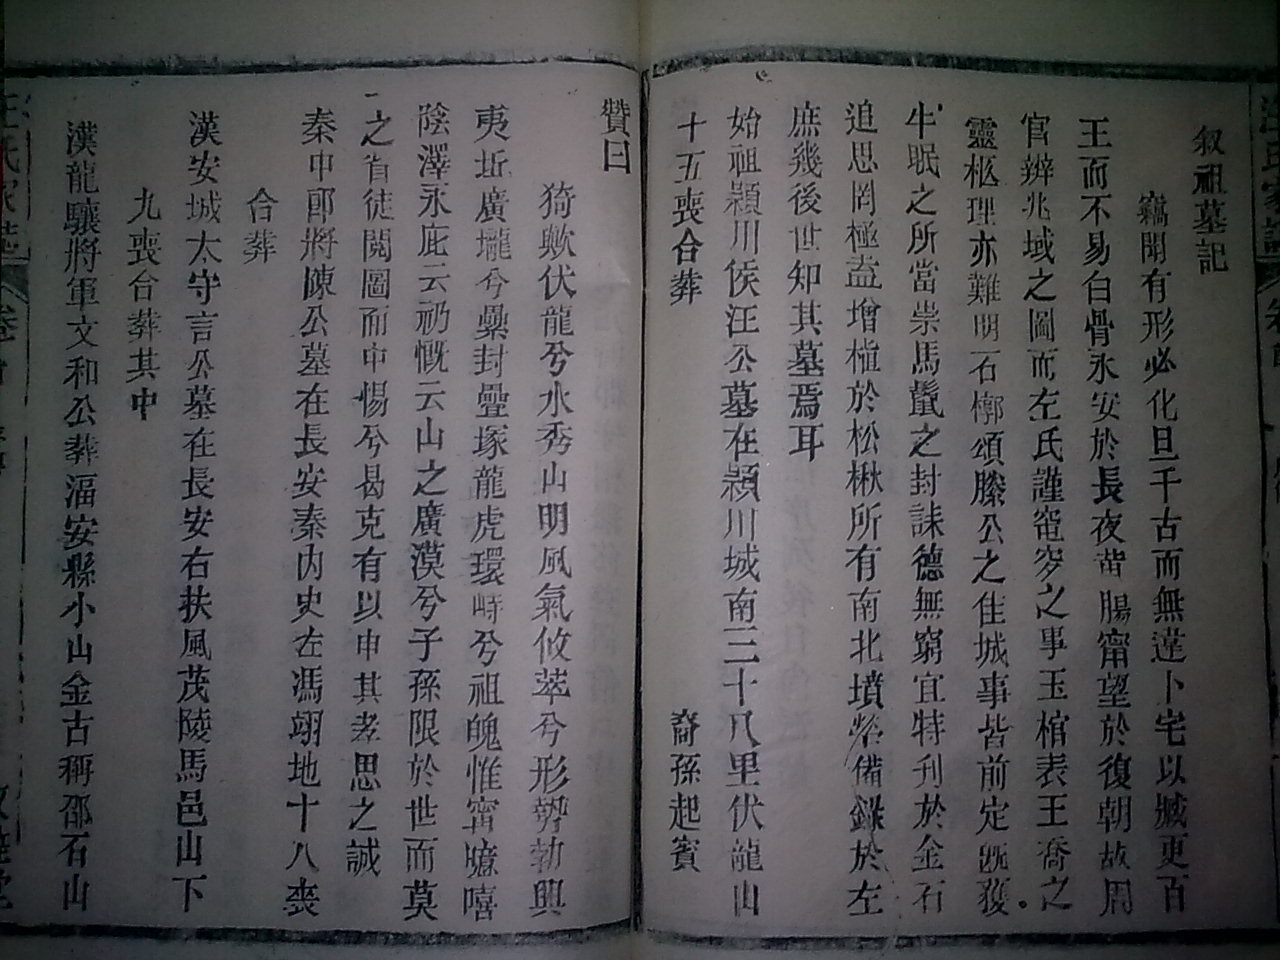 叙祖墓記
竊聞有形必化旦千古而無違卜宅以臧更百
王而不易白骨永安於長夜黃腸甯望於復朝故周
官辨兆域之圖而左氏謹窀穸之事玉棺表王喬之
靈柩理亦難明石槨頌滕公之佳城事皆前定旣獲
牛眠之所當崇馬鬣之封誄德無窮宜特刋於金石
追思罔極盍增植於松楸所有南北墳塋備錄於左
庶幾後世知其墓焉耳
始祖潁川侯汪公墓在潁川城南三十八里伏龍山
十五喪合葬
裔孫起賓
贊曰
猗歟伏龍兮水秀山明風氣攸萃兮形勢勃興
夷坵廣壠兮纍封疊塚龍虎環峙兮祖魄惟甯噫嘻
陰澤永庇云礽慨云山之廣漠兮子孫限於世而莫
之省徒閱圖而中惕兮曷克有以申其孝思之誠
秦中郎將陳公墓在長安秦內史左馮翊地十八喪
合葬
漢安城太守言公墓在長安右扶風茂陵馬邑山下
九喪合葬其中
漢龍驤將軍文和公葬湢安縣小山金古稱邵石山